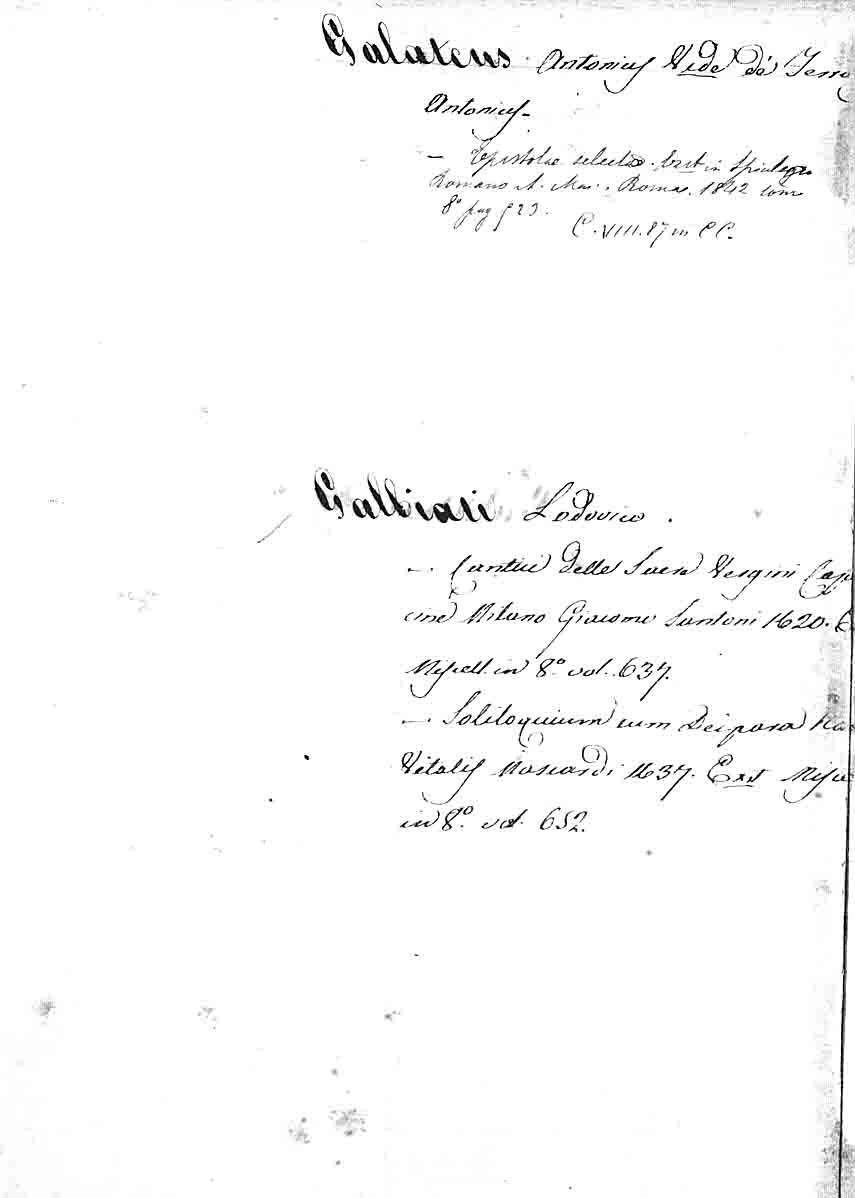 Galateus Antonius Vide de' Ferra
Antonius-
— Epistolae selectae. Exst in Spicilegio
Romano A. Mai. Romae. 1842 tom
8° pag 523.
C. VIII. 87 in CC.
Galbiati Lodovico.
— Cantici delle Sacre Vergini Cap
cine Milano Giacomo Santoni 1620. E
Miscell. in 8° vol. 637.
— Soliloquium cum Deipara
Vitalis Mascardi 1637. Exst Misc
in 8° vol. 652.